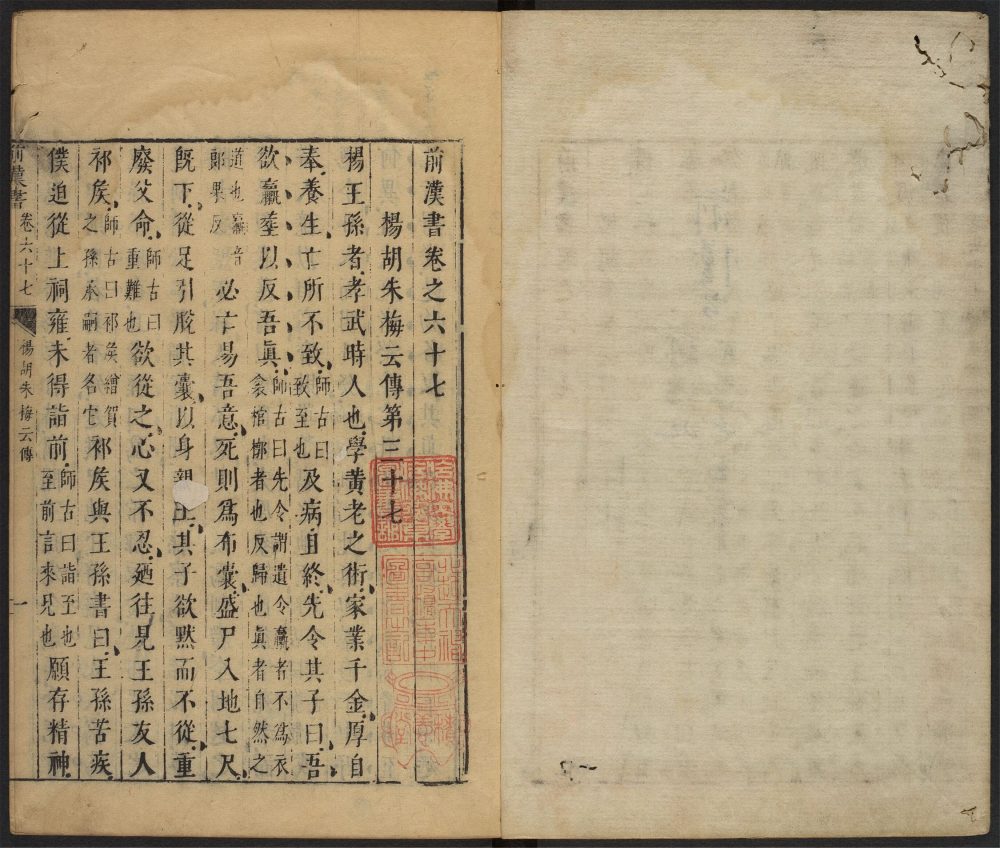 前漢書卷之六十七
楊胡朱梅云傳第三十七
楊王孫者孝武時人也學黃老之術家業千金厚自
奉養生亡所不致師古曰致至也及病且終先令其子曰吾
欲臝葬以反吾眞師古曰先令謂遺令臝者不爲衣衾棺槨者也反歸也眞者自然之
道也臝音郎果反必亡易吾意死則爲布囊盛尸入地七尺
旣下從足引脫其囊以身親土其子欲默而不從重
廢父命師古曰重難也欲從之心又不忍廼往見王孫友人
祁矦師古曰祁矦繒賀之孫承嗣者名它祁矦與王孫書曰王孫苦疾
僕迫從上祠雍未得詣前師古曰詣至也至前言來見也願存精神
前漢書
卷六十七
楊胡朱梅云傳
一